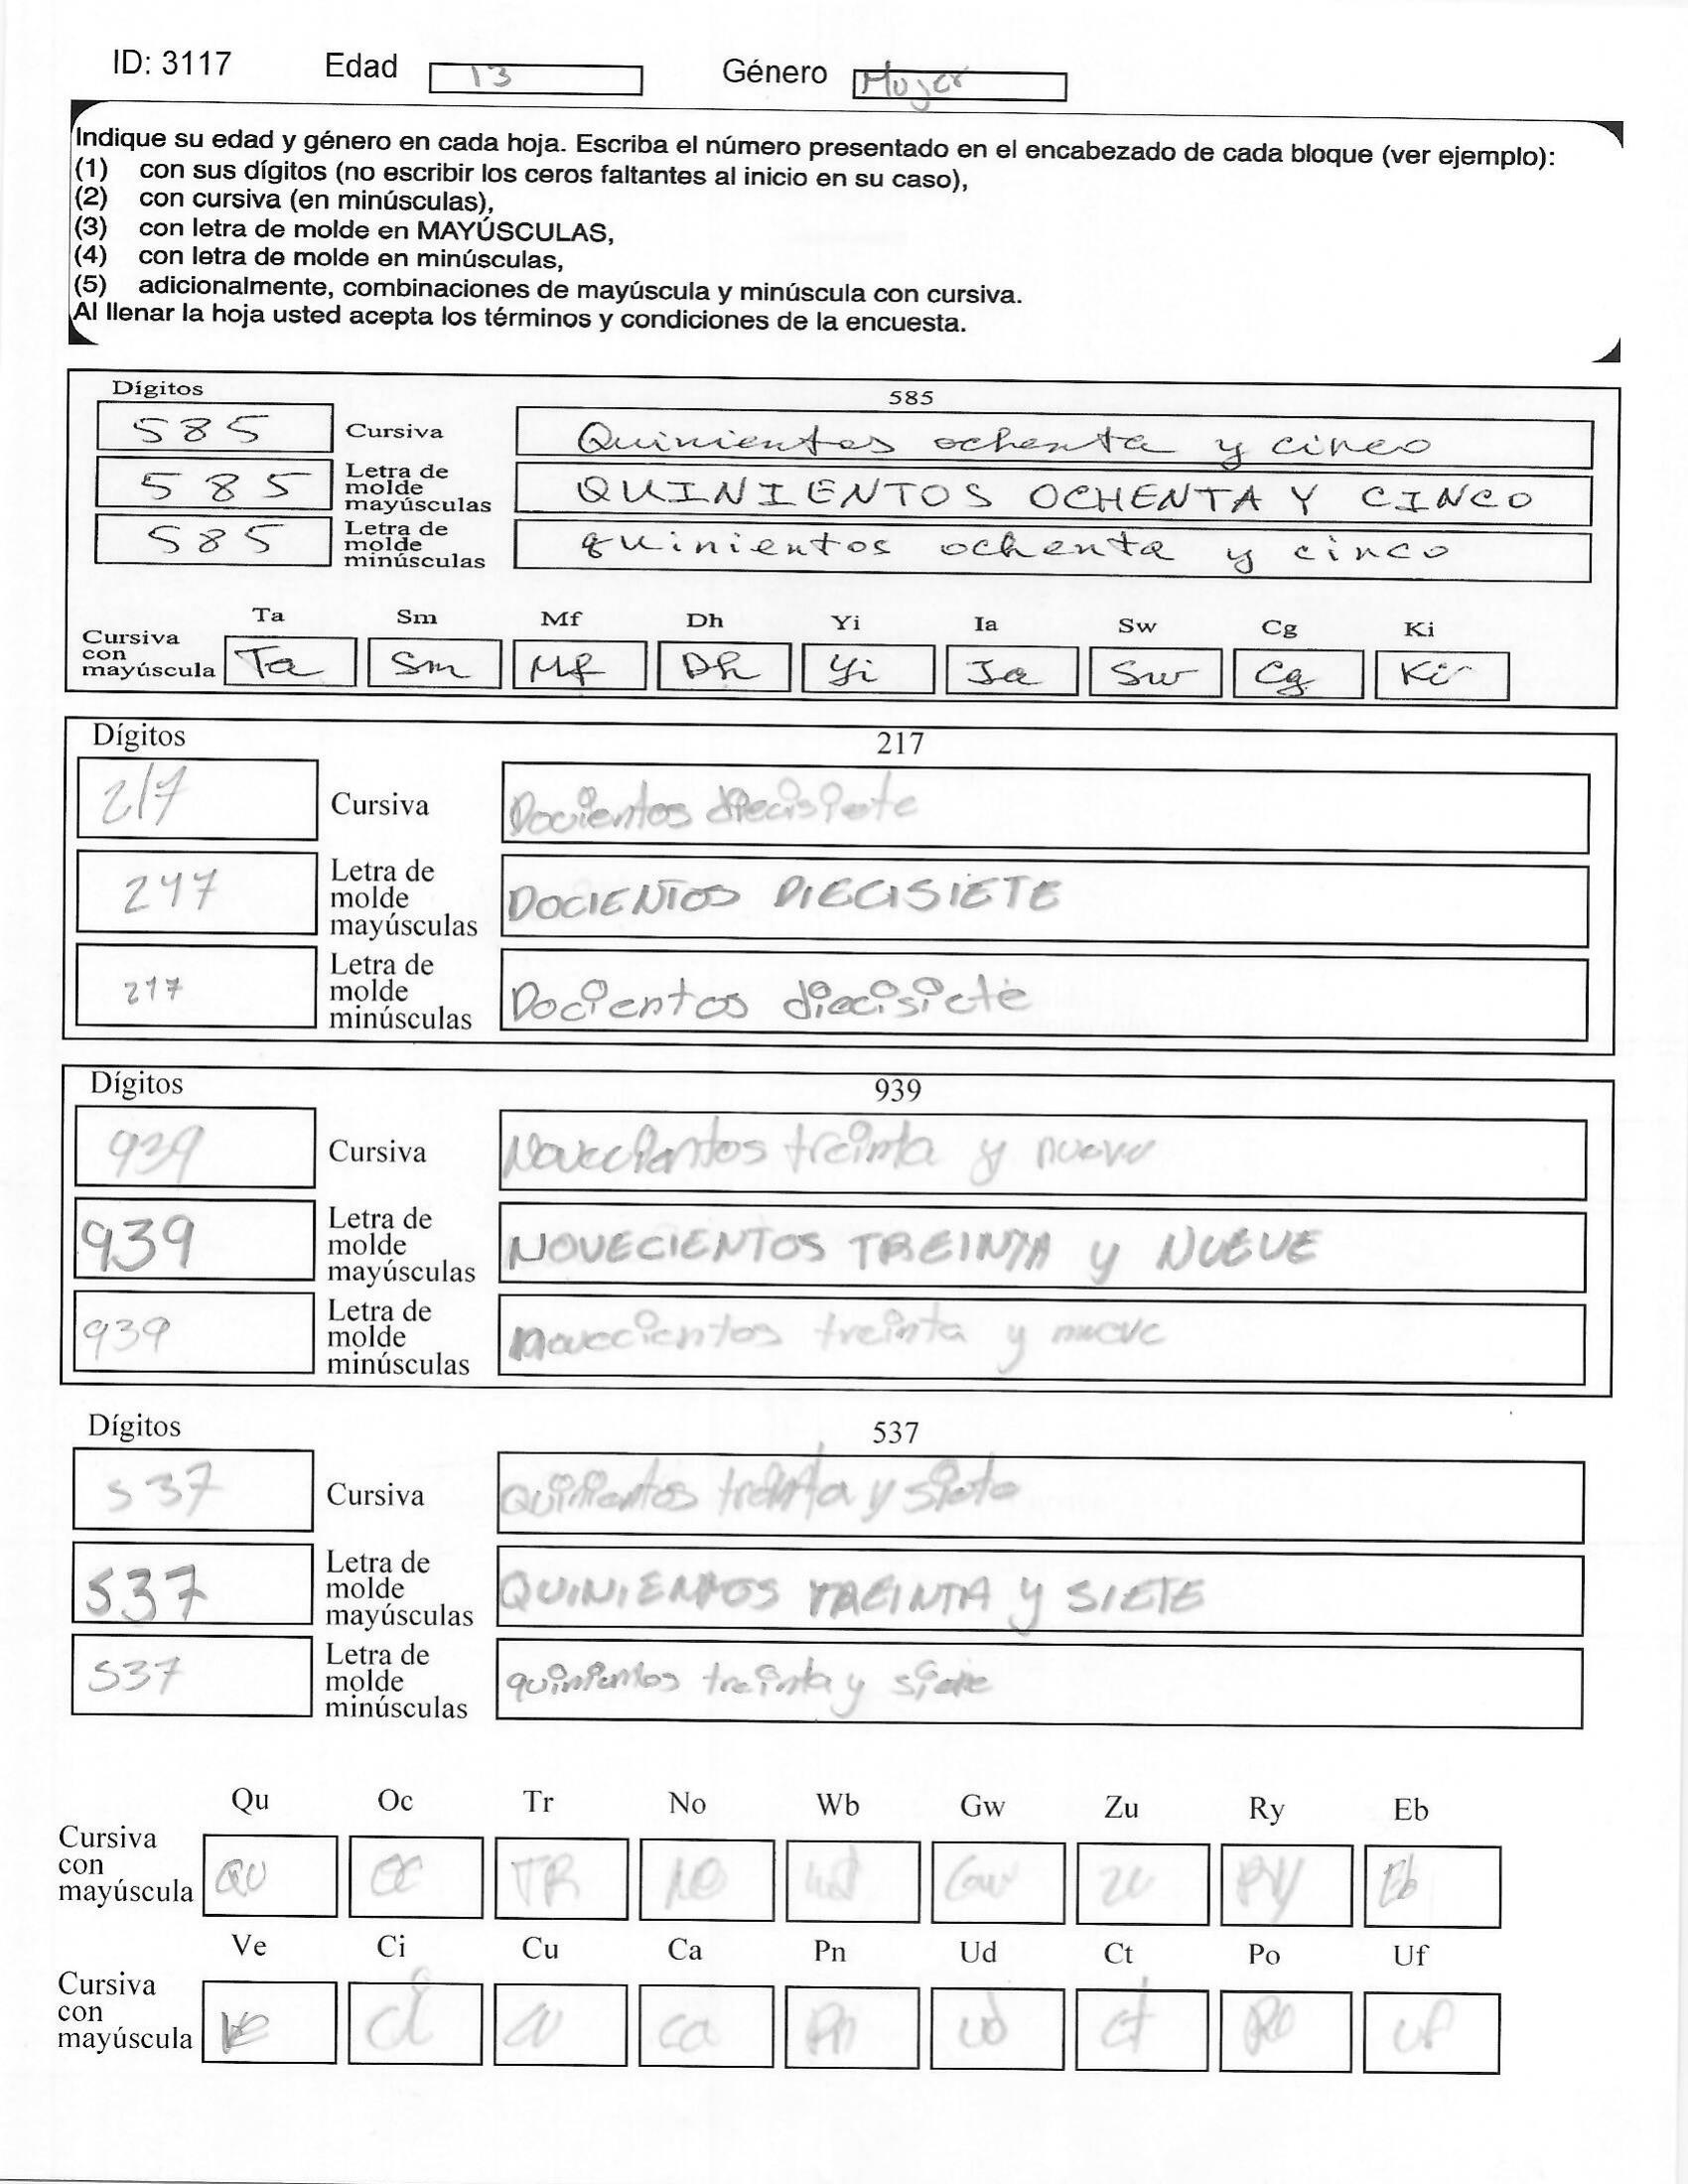 ID: 3117 Edad 13 Género Mujer
Indique su edad y género en cada hoja. Escriba el número presentado en el encabezado de cada bloque (ver ejemplo):
(1) con sus dígitos (no escribir los ceros faltantes al inicio en su caso),
(2) con cursiva (en minúsculas),
(3) con letra de molde en MAYÚSCULAS,
(4) con letra de molde en minúsculas,
(5) adicionalmente, combinaciones de mayúscula y minúscula con cursiva.
Al llenar la hoja usted acepta los términos y condiciones de la encuesta.
Dígitos 585
585 Cursiva Quinientos ochenta y cinco
585 Letra de molde mayúsculas QUINIENTOS OCHENTA Y CINCO
585 Letra de molde minúsculas quinientos ochenta y cinco
Ta Sm Mf Dh Yi Ia Sw Cg Ki
Cursiva con mayúscula Ta Sm Mf Dh Yi Ia Sw Cg Ki
Dígitos 217
217 Cursiva Docientos diecisiete
217 Letra de molde mayúsculas DOCIENTOS DIECISIETE
217 Letra de molde minúsculas Docientos diecisiete
Dígitos 939
939 Cursiva Novecientos treinta y nueve
939 Letra de molde mayúsculas NOVECIENTOS TREINTA y NUEVE
939 Letra de molde minúsculas novecientos treinta y nueve
Dígitos 537
537 Cursiva quinientos treinta y siete
537 Letra de molde mayúsculas QUINIENTOS TREINTA y SIETE
537 Letra de molde minúsculas quinientos treinta y siete
Qu Oc Tr No Wb Gw Zu Ry Eb
Cursiva con mayúscula QU OC TR NO wb Gw zu RY Eb
Ve Ci Cu Ca Pn Ud Ct Po Uf
Cursiva con mayúscula Ve ci cu ca Pn ud ct Po uf